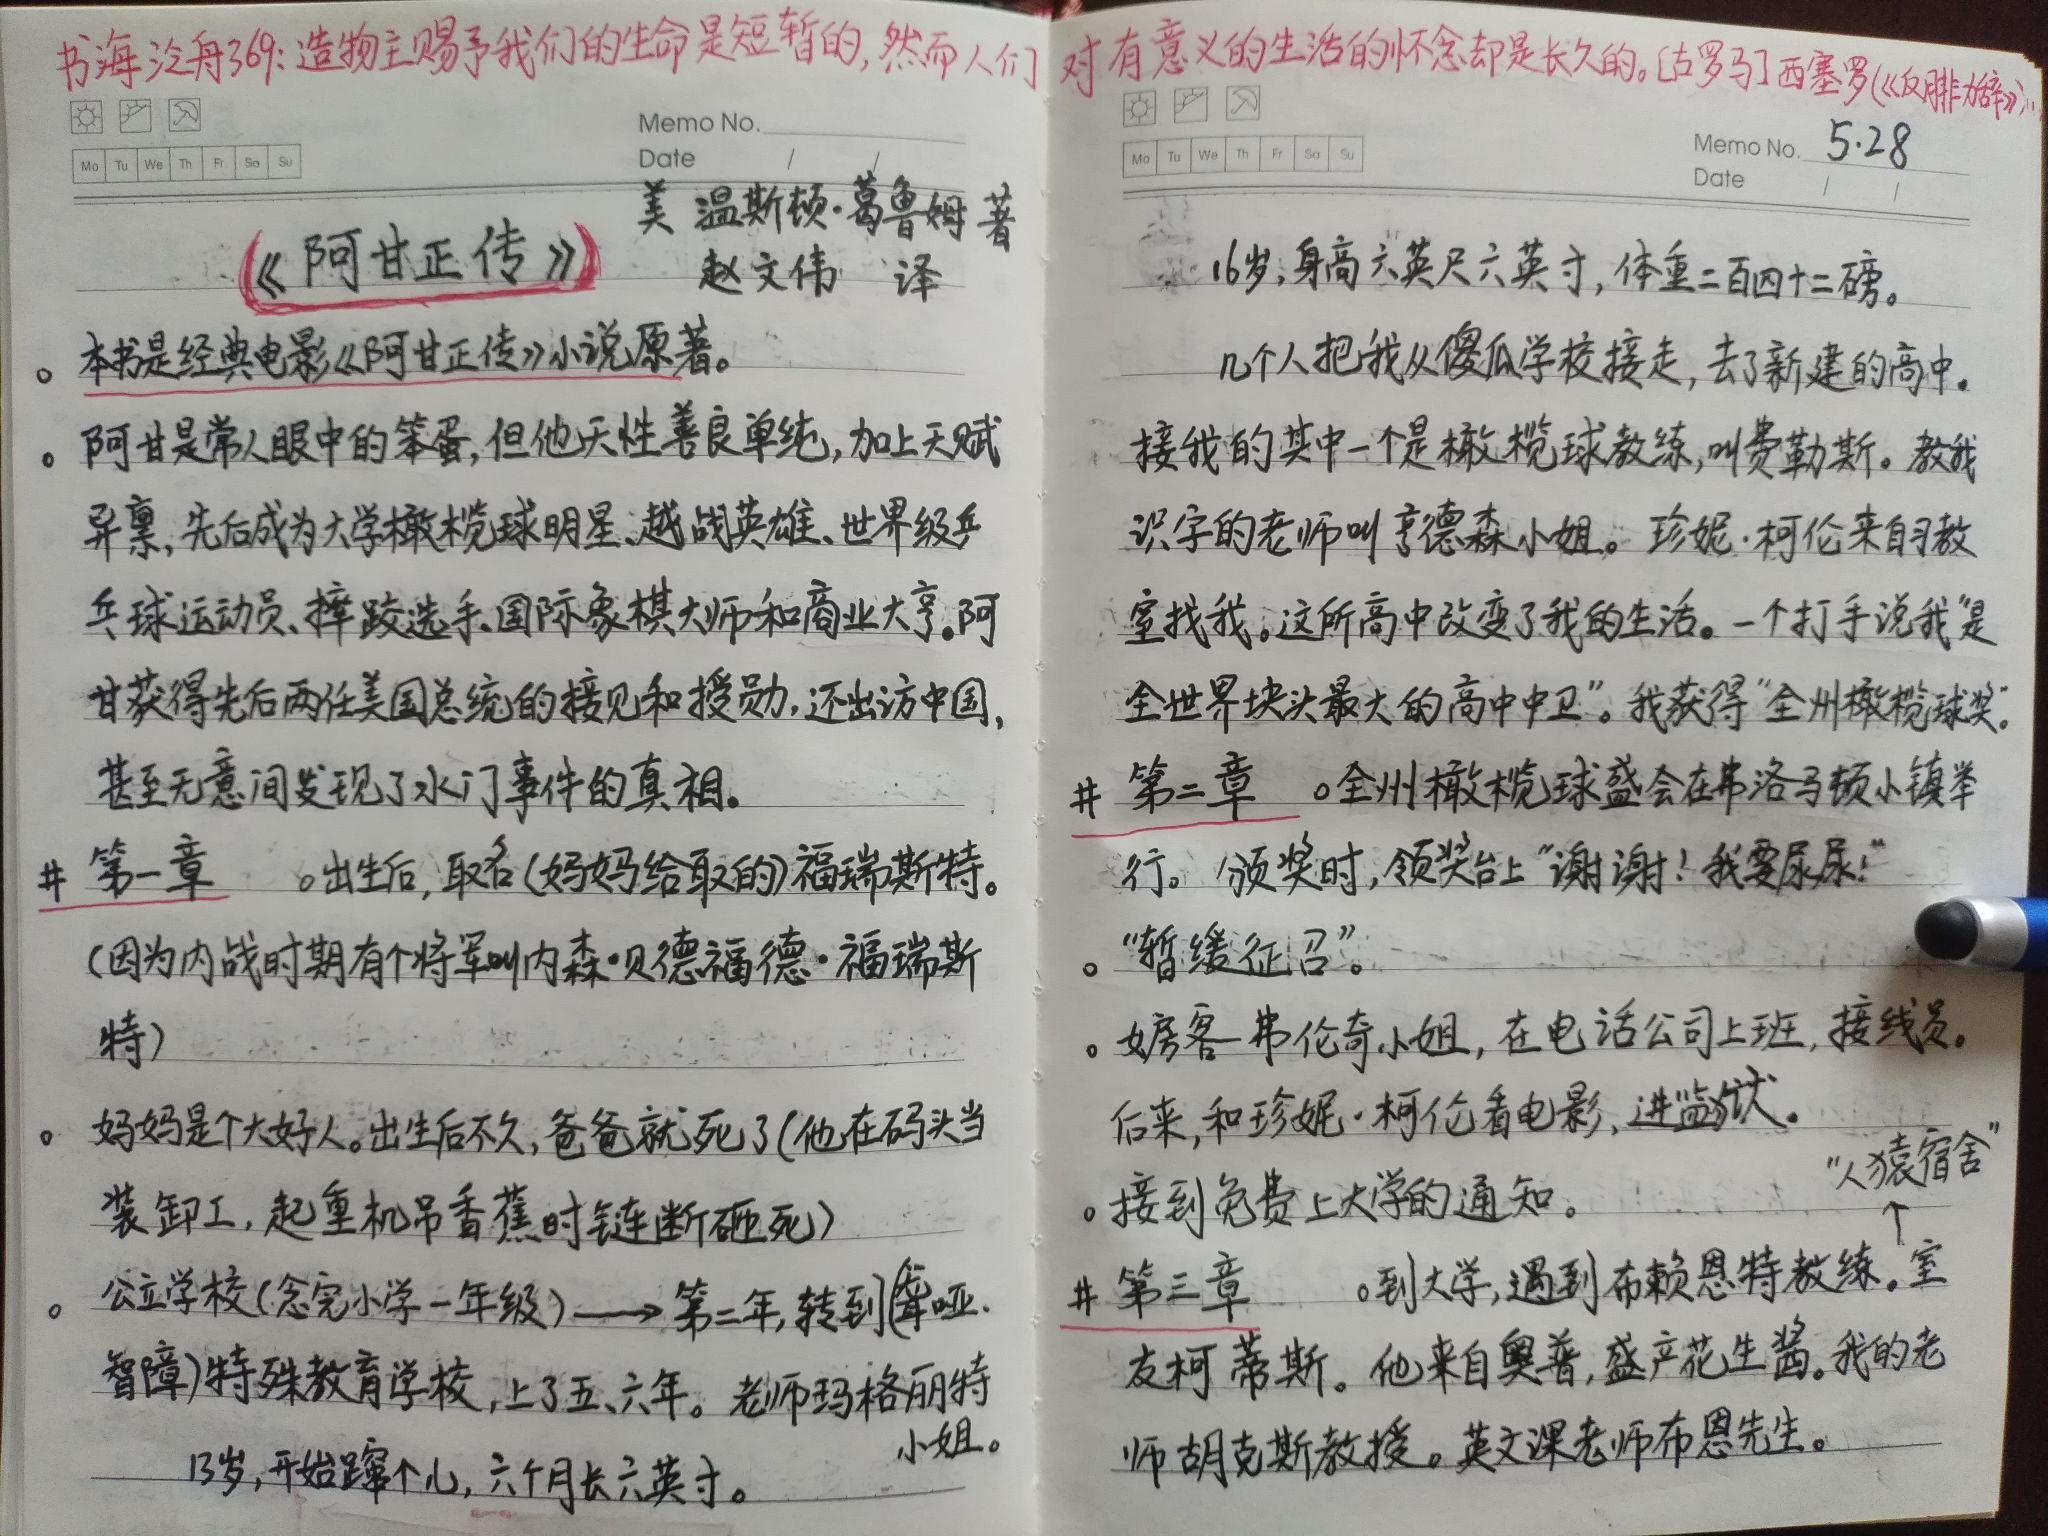 书海泛舟369：造物主赐予我们的生命是短暂的，然而人们对有意义的生活的怀念却是长久的。[古罗马]西塞罗(《反腓力辞》)
Memo No.
Date / /
Mo Tu We Th Fr Sa Su
美 温斯顿·葛鲁姆 著
《阿甘正传》
赵文伟 译
。本书是经典电影《阿甘正传》小说原著。
。阿甘是常人眼中的笨蛋，但他天性善良单纯，加上天赋
异禀，先后成为大学橄榄球明星、越战英雄、世界级乒
乓球运动员、摔跤选手、国际象棋大师和商业大亨。阿
甘获得先后两任美国总统的接见和授勋，还出访中国，
甚至无意间发现了水门事件的真相。
# 第一章 。出生后，取名(妈妈给取的)福瑞斯特。
(因为内战时期有个将军叫内森·贝德福德·福瑞斯
特)
。妈妈是个大好人。出生后不久，爸爸就死了(他在码头当
装卸工，起重机吊香蕉时链断砸死)
。公立学校(念完小学一年级)→第二年，转到(聋哑.
智障)特殊教育学校，上了五、六年。老师玛格丽特
小姐。
13岁，开始蹿个儿，六个月长六英寸。
Memo No. 5.28
Date / /
Mo Tu We Th Fr Sa Su
16岁，身高六英尺六英寸，体重二百四十二磅。
几个人把我从傻瓜学校接走，去了新建的高中。
接我的其中一个是橄榄球教练，叫费勒斯。教我
识字的老师叫亨德森小姐。珍妮·柯伦来自习教
室找我。这所高中改变了我的生活。一个打手说我"是
全世界块头最大的高中中卫"。我获得"全州橄榄球奖"。
# 第二章 。全州橄榄球盛会在弗洛马顿小镇举
行。颁奖时，领奖台上"谢谢！我要尿尿！"
。"暂缓征召"。
。女房客弗伦奇小姐，在电话公司上班，接线员。
后来，和珍妮·柯伦看电影，进"监狱"。
"人猿宿舍"
。接到免费上大学的通知。
↑
# 第三章 。到大学，遇到布赖恩特教练。室
友柯蒂斯。他来自奥普，盛产花生酱。我的老
师胡克斯教授。英文课老师布恩先生。